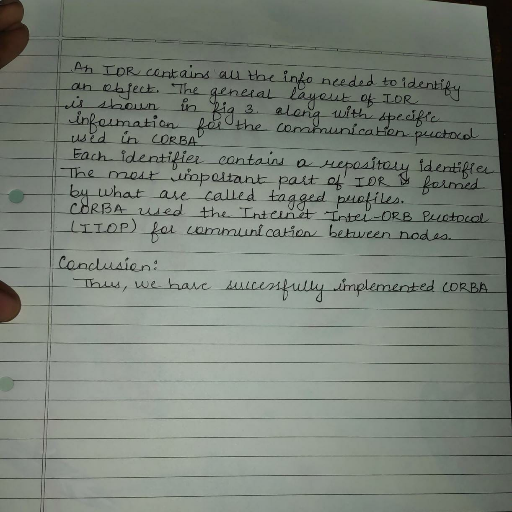 An IOR contains all the info needed to identify
an object. The general layout of IOR
is shown in fig 3. along with specific
information for the communication protocol
used in CORBA
Each identifier contains a repository identifier
The most important part of IOR is formed
by what are called tagged profiles.
CORBA used the Internet Inter-ORB Protocol
(IIOP) for communication between nodes.
Conclusion:
Thus, we have successfully implemented CORBA